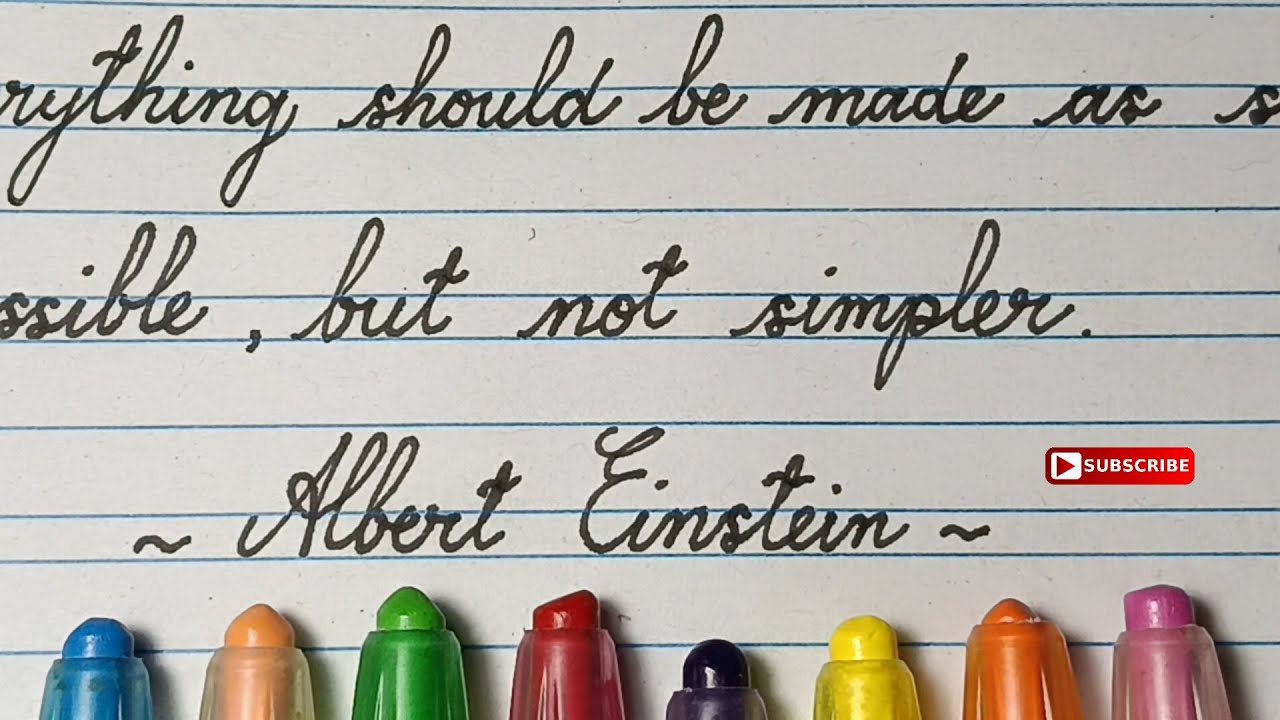 rything should be made as s
ssible, but not simpler.
~ Albert Einstein ~
SUBSCRIBE